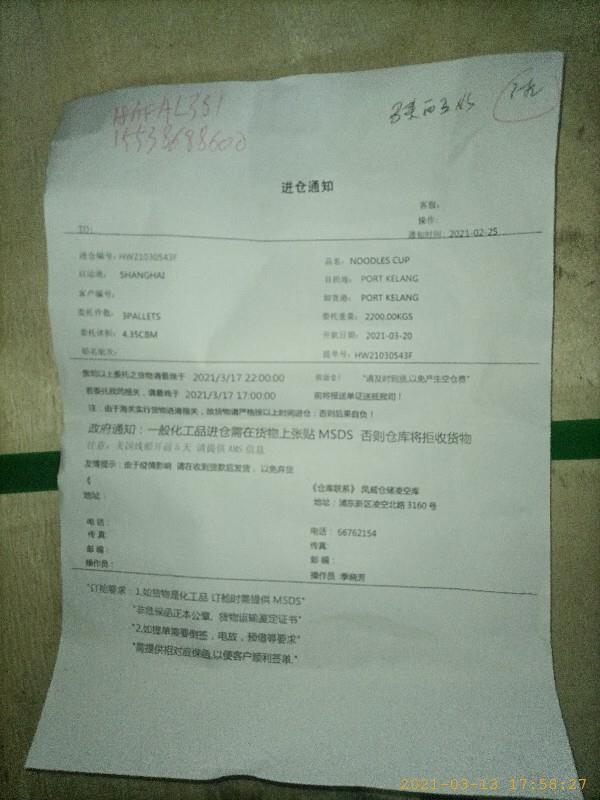 15538698600
进仓通知
客服：
操作：
TO：
通知时间：2021-02-25
进仓编号：HW21030543F
品名：NOODLES CUP
启运港： SHANGHAI
目的地： PORT KELANG
客户编号：
卸货港： PORT KELANG
委托件数： 3PALLETS
委托重量： 2200.00KGS
委托体积： 4.35CBM
开航日期： 2021-03-20
船名航次：
提单号：HW21030543F
您司以上委托之货物请最晚于 2021/3/17 22:00:00
"请及时到货,以免产生空仓费"
若委托我司报关，请最晚于 2021/3/17 17:00:00
前将报送单证送抵我司！
注：由于海关实行货物进港报关，故货物请严格按以上时间进仓；否则后果自负！
政府通知：一般化工品进仓需在货物上张贴 MSDS 否则仓库将拒收货物
注意：美国线船开前 5 天 请提供 AMS 信息
友情提示：由于疫情影响 请在收到货款后发货，以免弃货
《
《仓库联系》 凤威仓储凌空库
地址：
地址：浦东新区凌空北路 3160 号
电话：
电话： 66762154
传真：
传真：
邮编：
邮编：
操作员：
操作员 季晓芳
"订舱要求：1.如货物是化工品 订舱时需提供 MSDS"
"非危保函正本公章，货物运输鉴定证书"
"2.如提单需要倒签，电放，预借等要求"
"需提供相对应保函,以便客户顺利签单."
2021-03-13 17:58:27